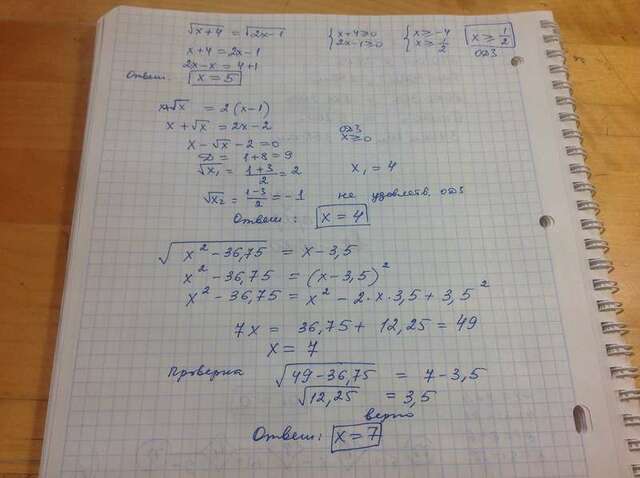 √x+4 = √2x-1 { x+4≥0 2x-1≥0 { x≥-4 x≥1/2 x≥1/2
x+4 = 2x-1 ОДЗ
2x-x = 4+1
Ответ: x = 5
x+√x = 2(x-1)
x + √x = 2x-2 ОДЗ
x - √x - 2 = 0 x≥0
D = 1+8 = 9
√x₁ = (1+3)/2 = 2 x₁ = 4
√x₂ = (1-3)/2 = -1 не удовлетв. ОДЗ
Ответ: x = 4
√x² - 36,75 = x - 3,5
x² - 36,75 = (x-3,5)²
x² - 36,75 = x² - 2·x·3,5 + 3,5²
7x = 36,75 + 12,25 = 49
x = 7
Проверка √49-36,75 = 7-3,5
√12,25 = 3,5
верно
Ответ: x = 7